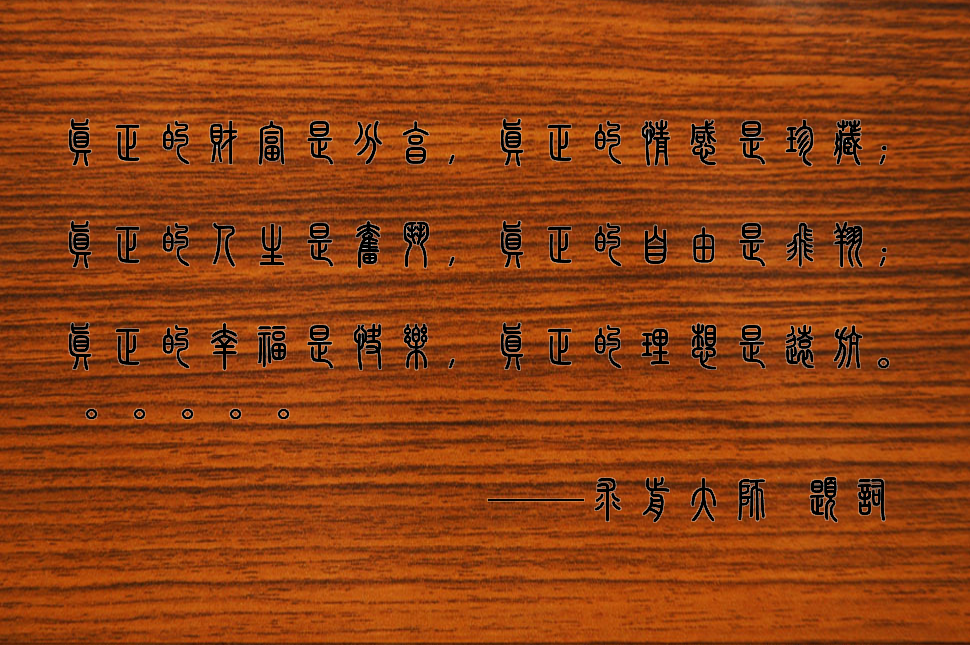 真正的財富是分享,真正的情感是珍藏;
真正的人生是奮鬥,真正的自由是飛翔;
真正的幸福是快樂,真正的理想是遠航。
。。。。。
——大師 題詞